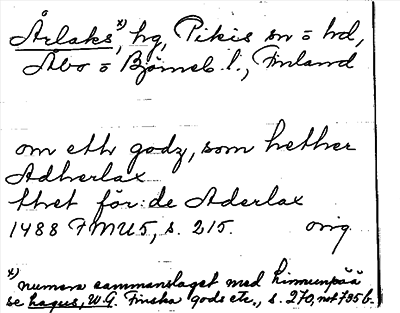 Årlaks x), hg, Pikis sn o hd,
Åbo o Björneb. l., Finland
om ett godz, som hether
Adherlax
thet för:de Aderlax
1488 FMU5, s. 215. orig
x) numera sammanslaget med Linnunpää
se Lagus, W.G. Finska gods etc., s. 270, not 795 b.